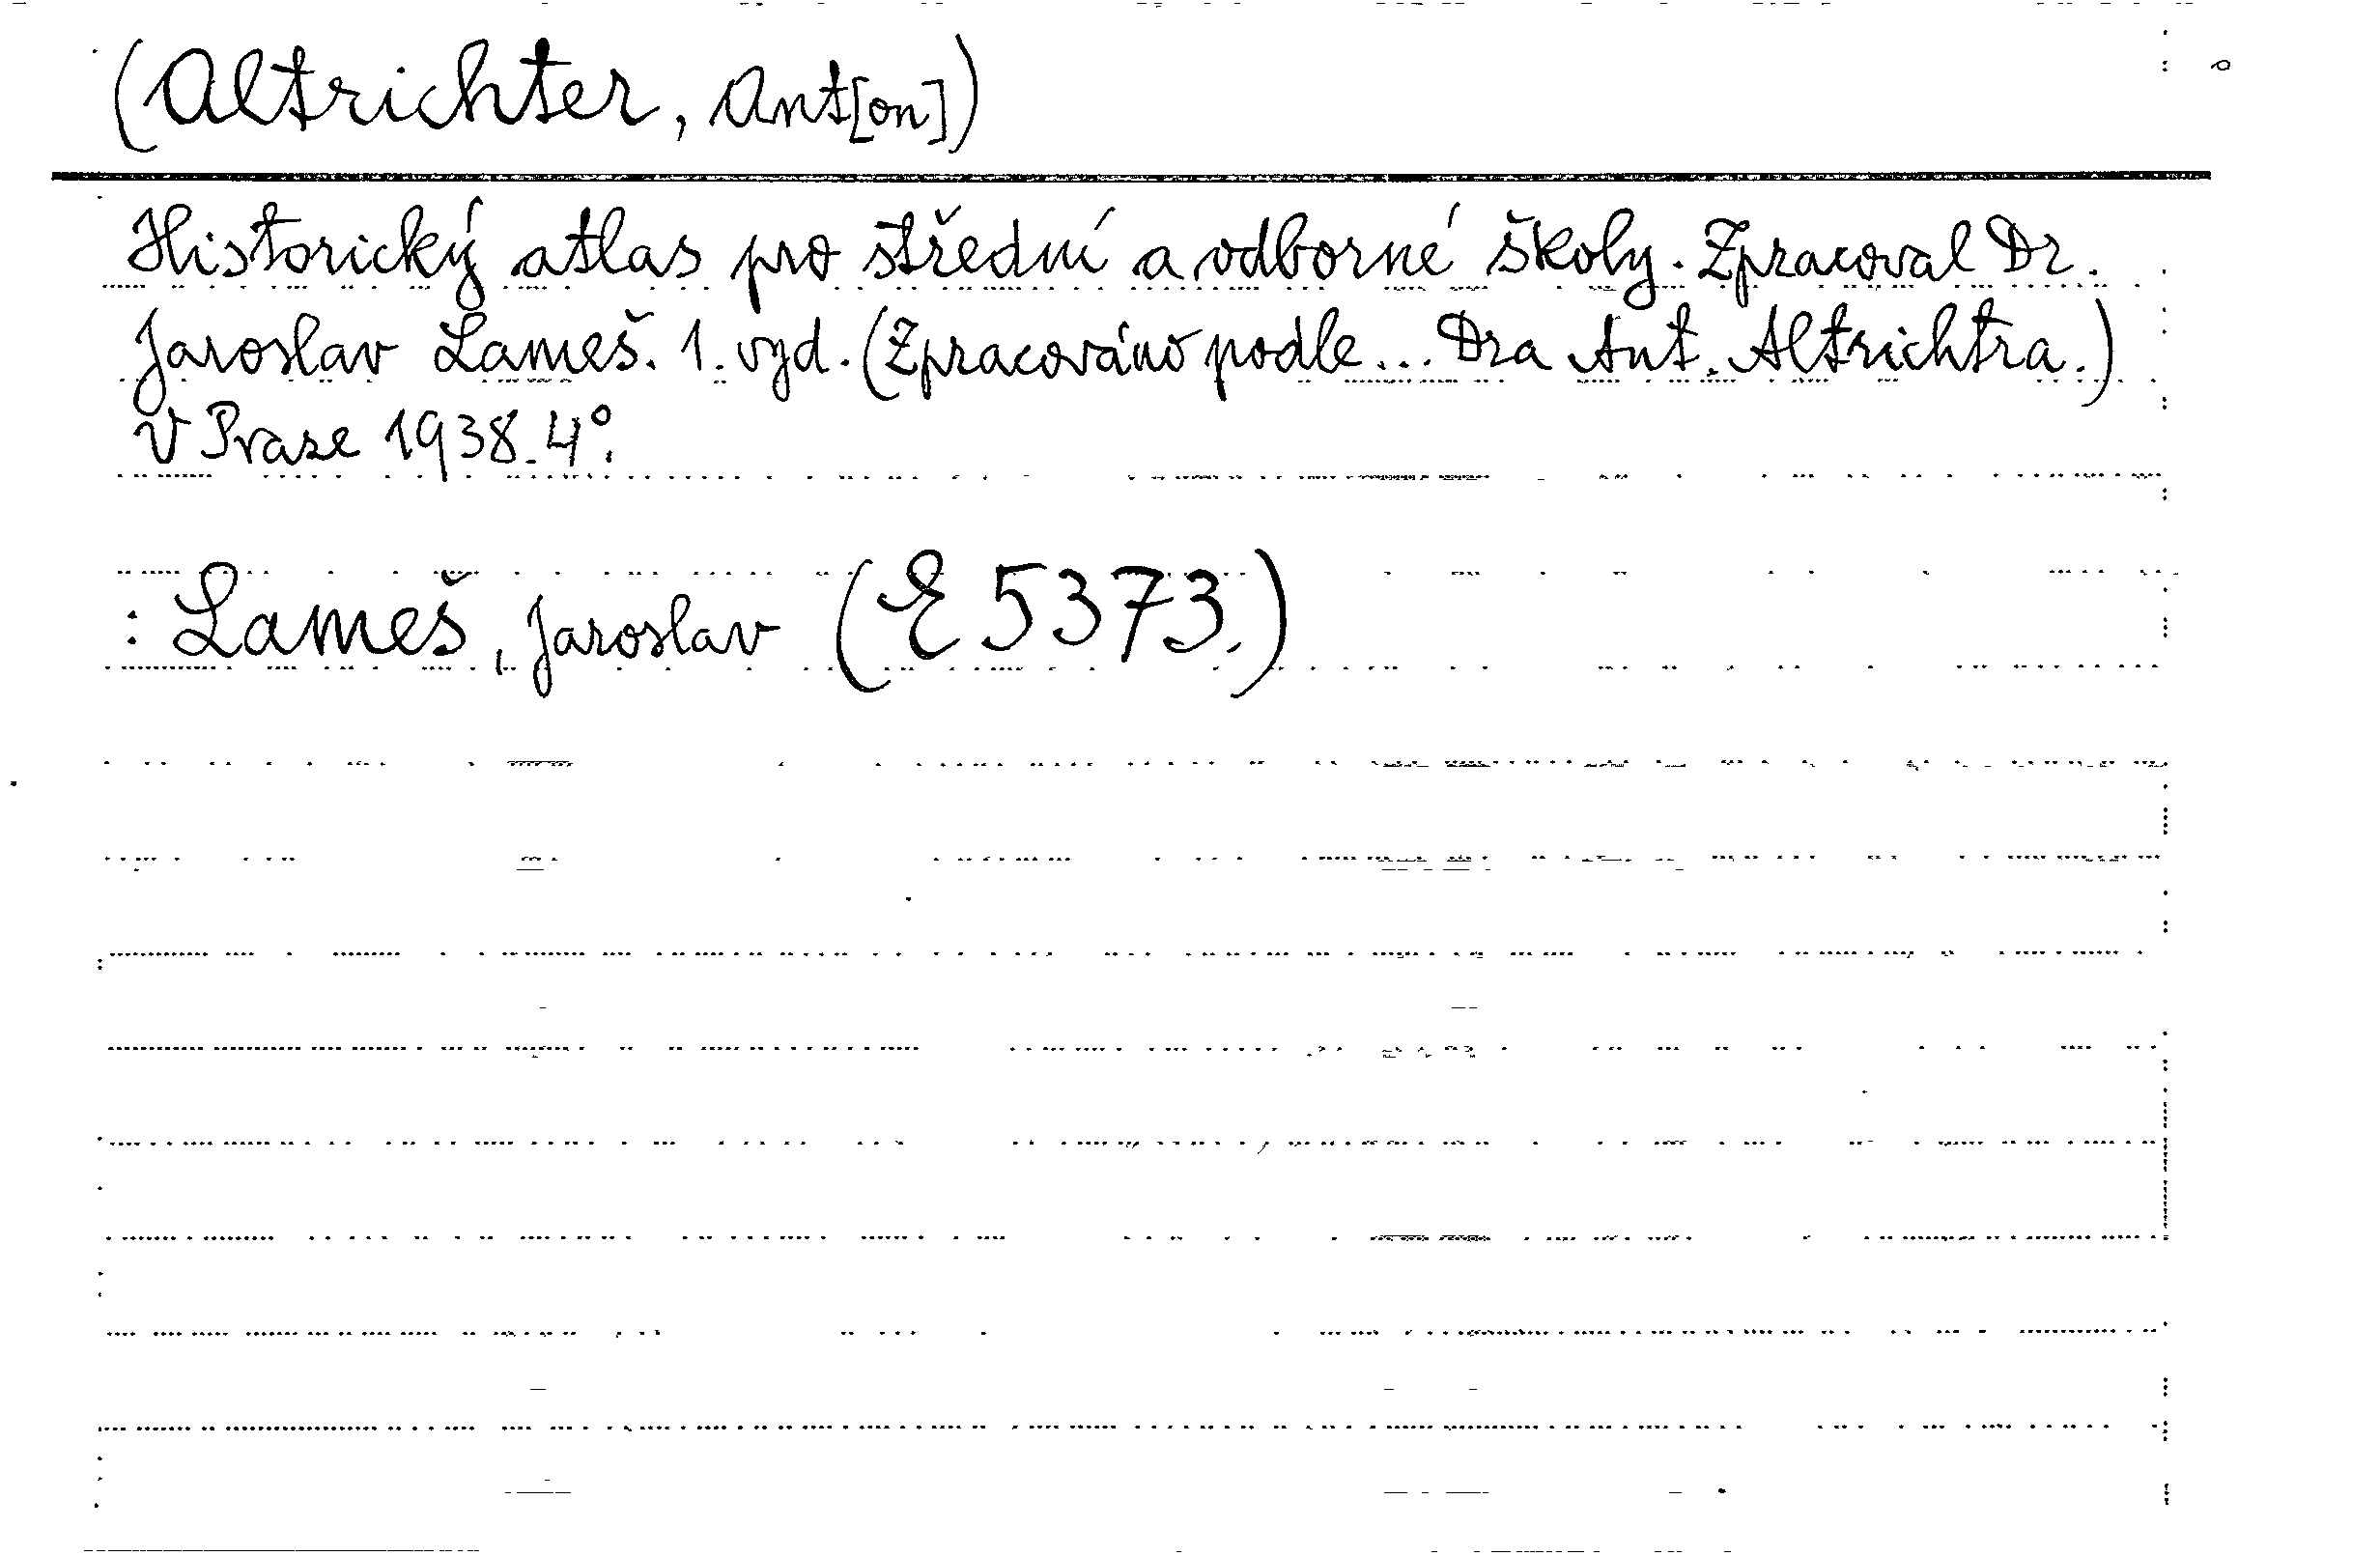 (Altrichter, Ant[on])
Historický atlas pro střední a odborné školy. Zpracoval Dr.
Jaroslav Lameš. 1. vyd. (Zpracováno podle... Dra Ant. Altrichtra.)
V Praze 1938. 4°.
: Lameš, Jaroslav (E 5373.)